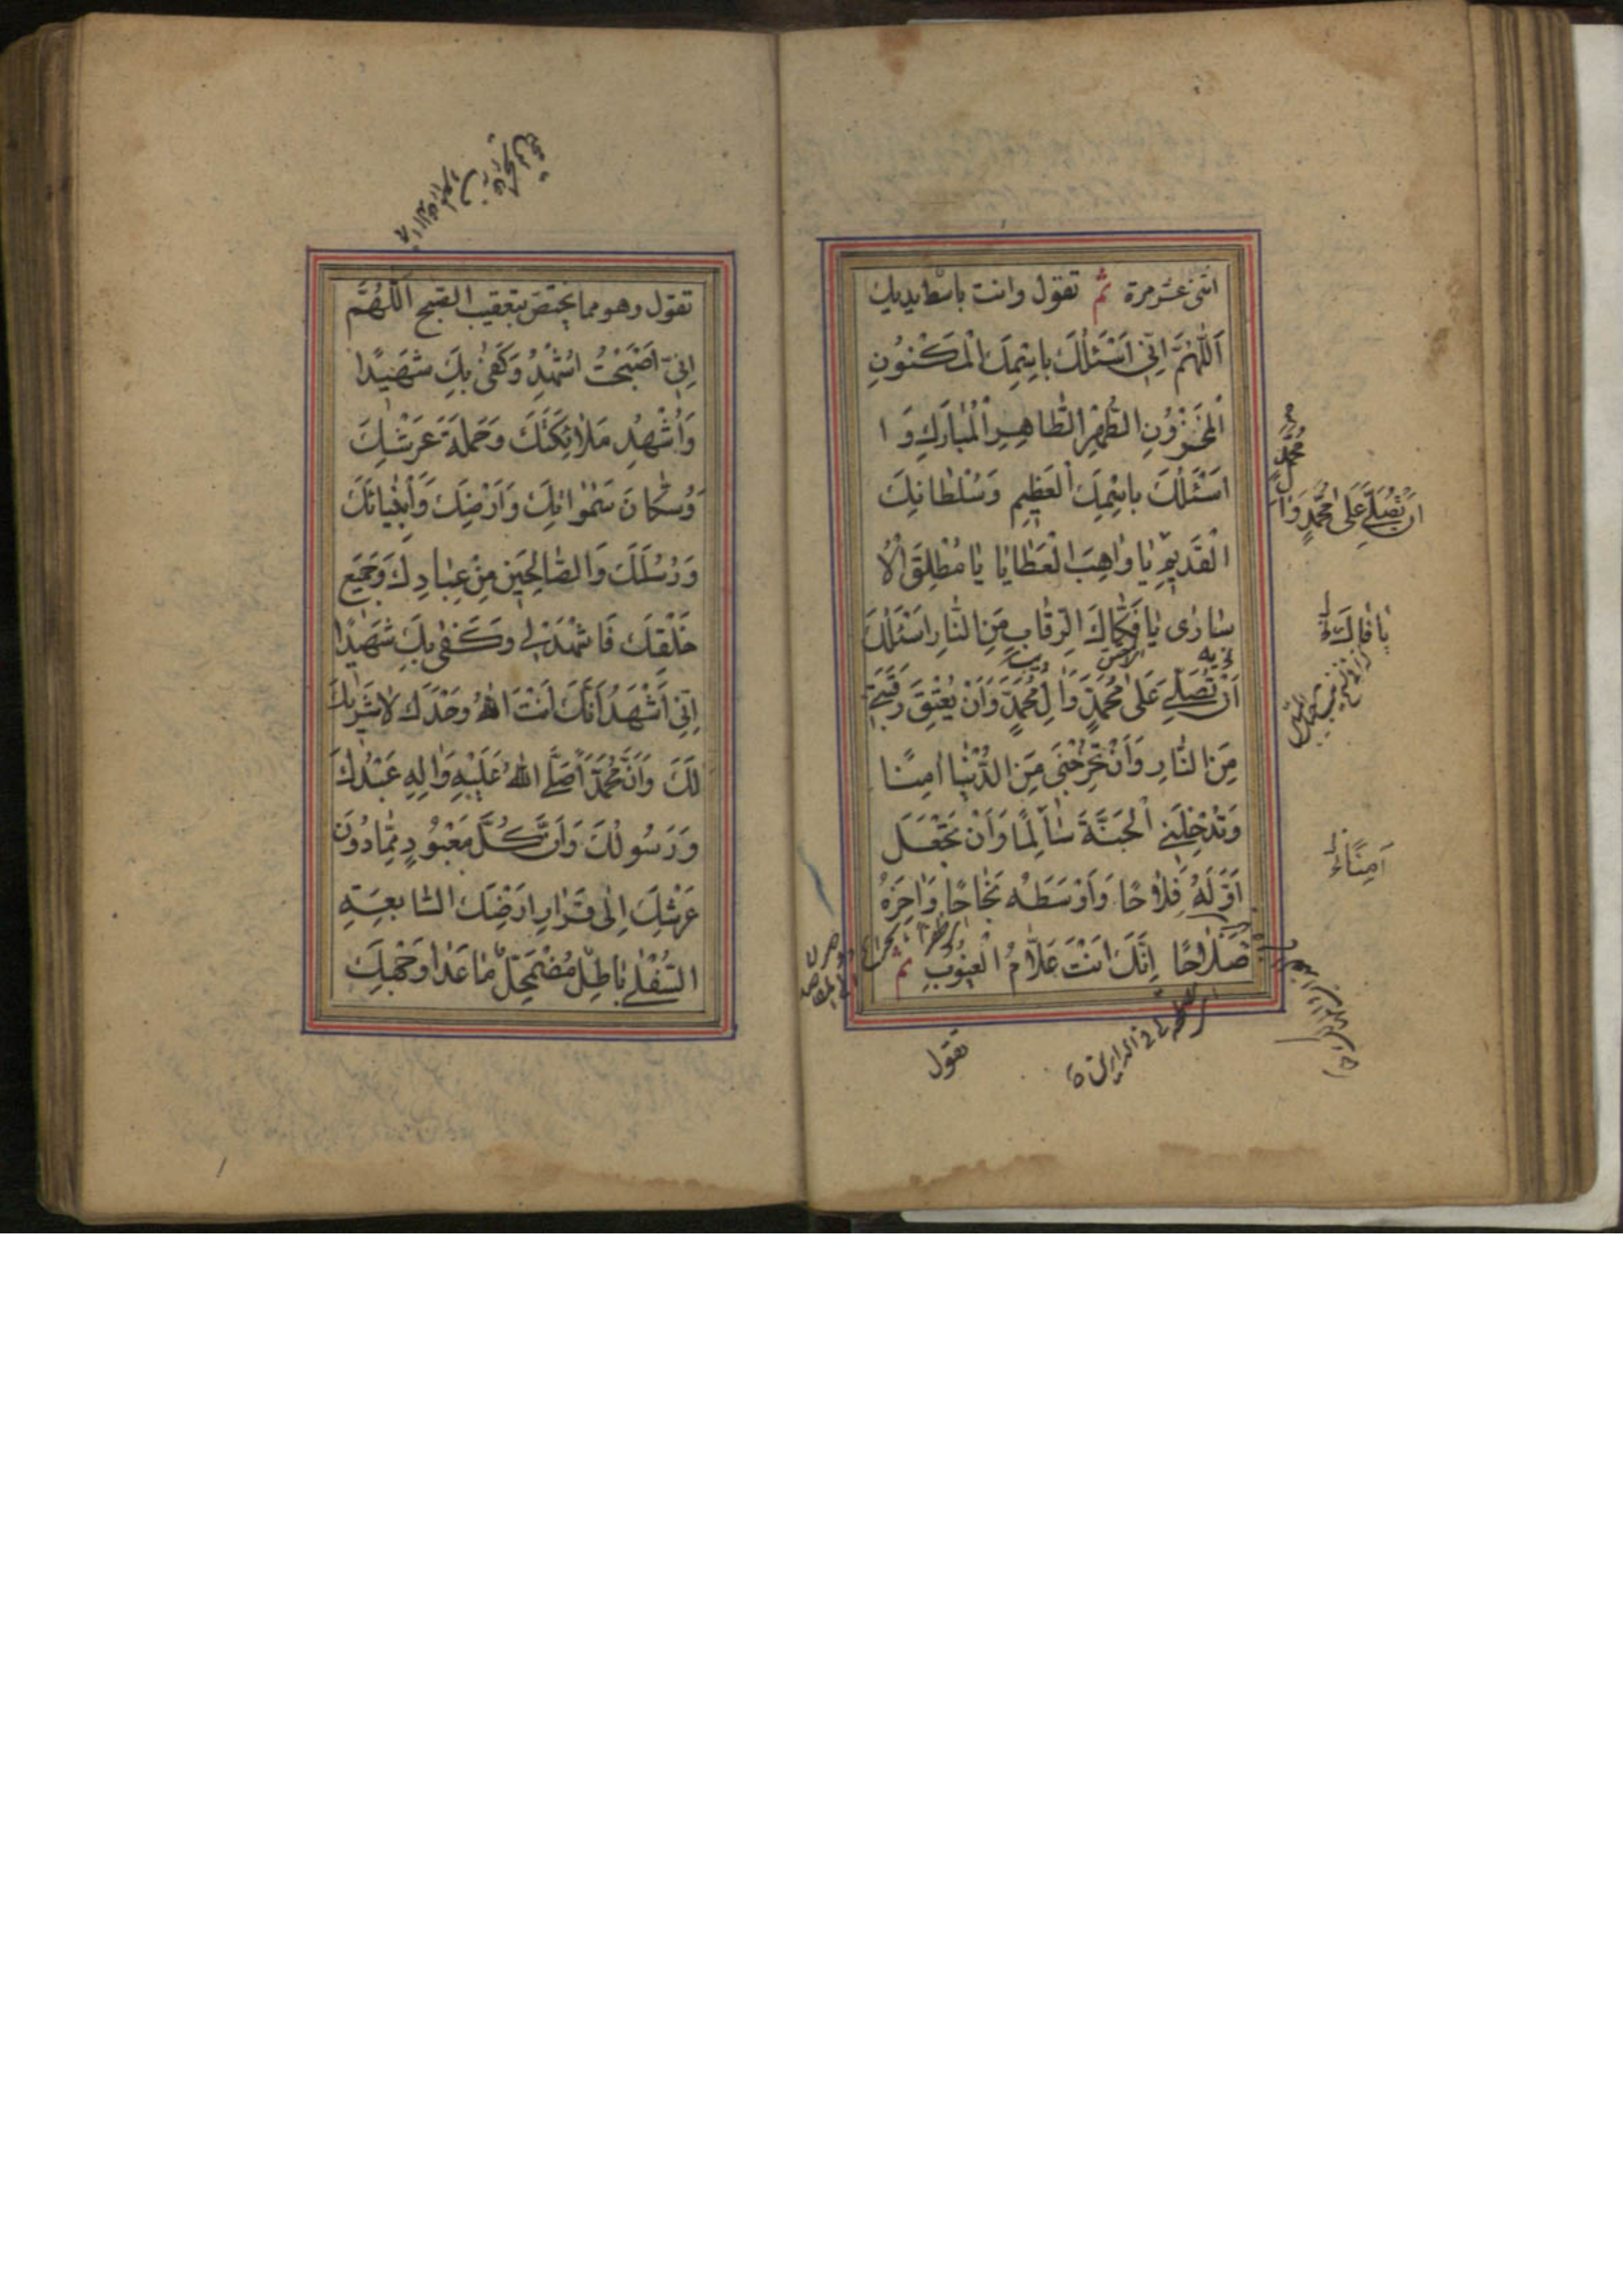 اثنى عشر مرة ثم تقول وانت باسط يديك
اَللّٰهُمَّ اِنّى اَسْئَلُكَ بِاسْمِكَ الْمَكْنُونِ
الْمَخْزُونِ الطُّهْرِ الطَّاهِرِ الْمُبَارَكِ وَ ا
اَسْئَلُكَ بِاسْمِكَ الْعَظِيمِ وَسُلْطَانِكَ
الْقَدِيمِ يَا وَاهِبَ الْعَطَايَا يَا مُطْلِقَ الْاُ
سَارٰى يَا فَكَّاكَ الرِّقَابِ مِنَ النَّارِ اَسْئَلُكَ
اَنْ تُصَلِّىَ عَلٰى مُحَمَّدٍ وَاٰلِ مُحَمَّدٍ وَاَنْ تُعْتِقَ رَقَبَتِى
مِنَ النَّارِ وَاَنْ تُخْرِجَنِى مِنَ الدُّنْيَا اٰمِنًا
وَتُدْخِلَنِى الْجَنَّةَ سَالِمًا وَاَنْ تَجْعَلَ
اَوَّلَهُ فَلَاحًا وَاَوْسَطَهُ نَجَاحًا وَاٰخِرَهُ
صَلَاحًا اِنَّكَ اَنْتَ عَلَّامُ الْغُيُوبِ ثم
تقول
اَنْ تُصَلِّىَ عَلٰى مُحَمَّدٍ وَاٰ
لِ مُحَمَّدٍ
يَا فَاكَّ
اٰمِنًا
تقول وهو مما يختص بتعقيب الصبح اَللّٰهُمَّ
اِنّى اَصْبَحْتُ اُشْهِدُكَ وَكَفٰى بِكَ شَهِيدًا
وَاُشْهِدُ مَلَائِكَتَكَ وَحَمَلَةَ عَرْشِكَ
وَسُكَّانَ سَمٰوَاتِكَ وَاَرْضِكَ وَاَنْبِيَائَكَ
وَرُسُلَكَ وَالصَّالِحِينَ مِنْ عِبَادِكَ وَجَمِيعَ
خَلْقِكَ فَاشْهَدْ لِى وَكَفٰى بِكَ شَهِيدًا
اِنِّى اَشْهَدُ اَنَّكَ اَنْتَ اللهُ وَحْدَكَ لَا شَرِيكَ
لَكَ وَاَنَّ مُحَمَّدًا صَلَّى اللهُ عَلَيْهِ وَاٰلِهِ عَبْدُكَ
وَرَسُولُكَ وَاَنَّ كُلَّ مَعْبُودٍ مِمَّا دُونَ
عَرْشِكَ اِلٰى قَرَارِ اَرْضِكَ السَّابِعَةِ
السُّفْلٰى بَاطِلٌ مُضْمَحِلٌّ مَا عَدَا وَجْهِكَ